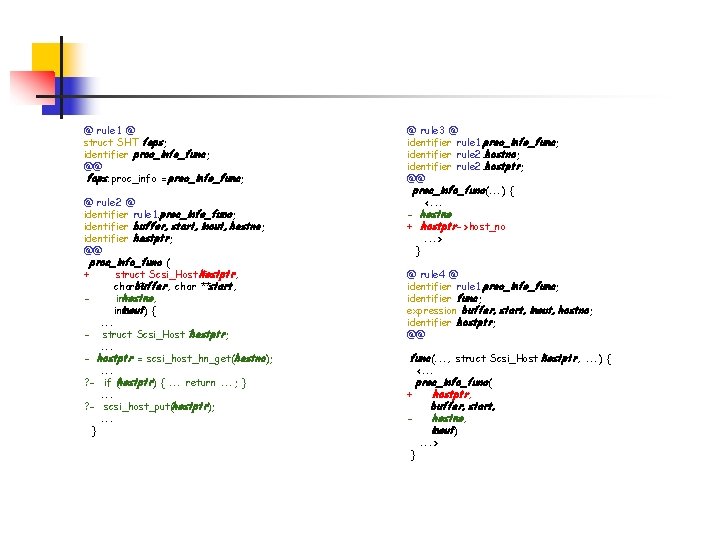 @ rule1 @
struct SHT fops;
identifier proc_info_func;
@@
fops.proc_info = proc_info_func;
@ rule2 @
identifier rule1.proc_info_func;
identifier buffer, start, inout, hostno;
identifier hostptr;
@@
proc_info_func (
+ struct Scsi_Host hostptr,
char buffer, char **start,
- int hostno,
int inout) {
...
- struct Scsi_Host hostptr;
...
- hostptr = scsi_host_hn_get(hostno);
...
?- if (hostptr) { ... return ...; }
...
?- scsi_host_put(hostptr);
...
}
@ rule3 @
identifier rule1.proc_info_func;
identifier rule2.hostno;
identifier rule2.hostptr;
@@
proc_info_func(...) {
<...
- hostno
+ hostptr->host_no
...>
}
@ rule4 @
identifier rule1.proc_info_func;
identifier func;
expression buffer, start, inout, hostno;
identifier hostptr;
@@
func(..., struct Scsi_Host hostptr, ...) {
<...
proc_info_func(
+ hostptr,
buffer, start,
- hostno,
inout)
...>
}